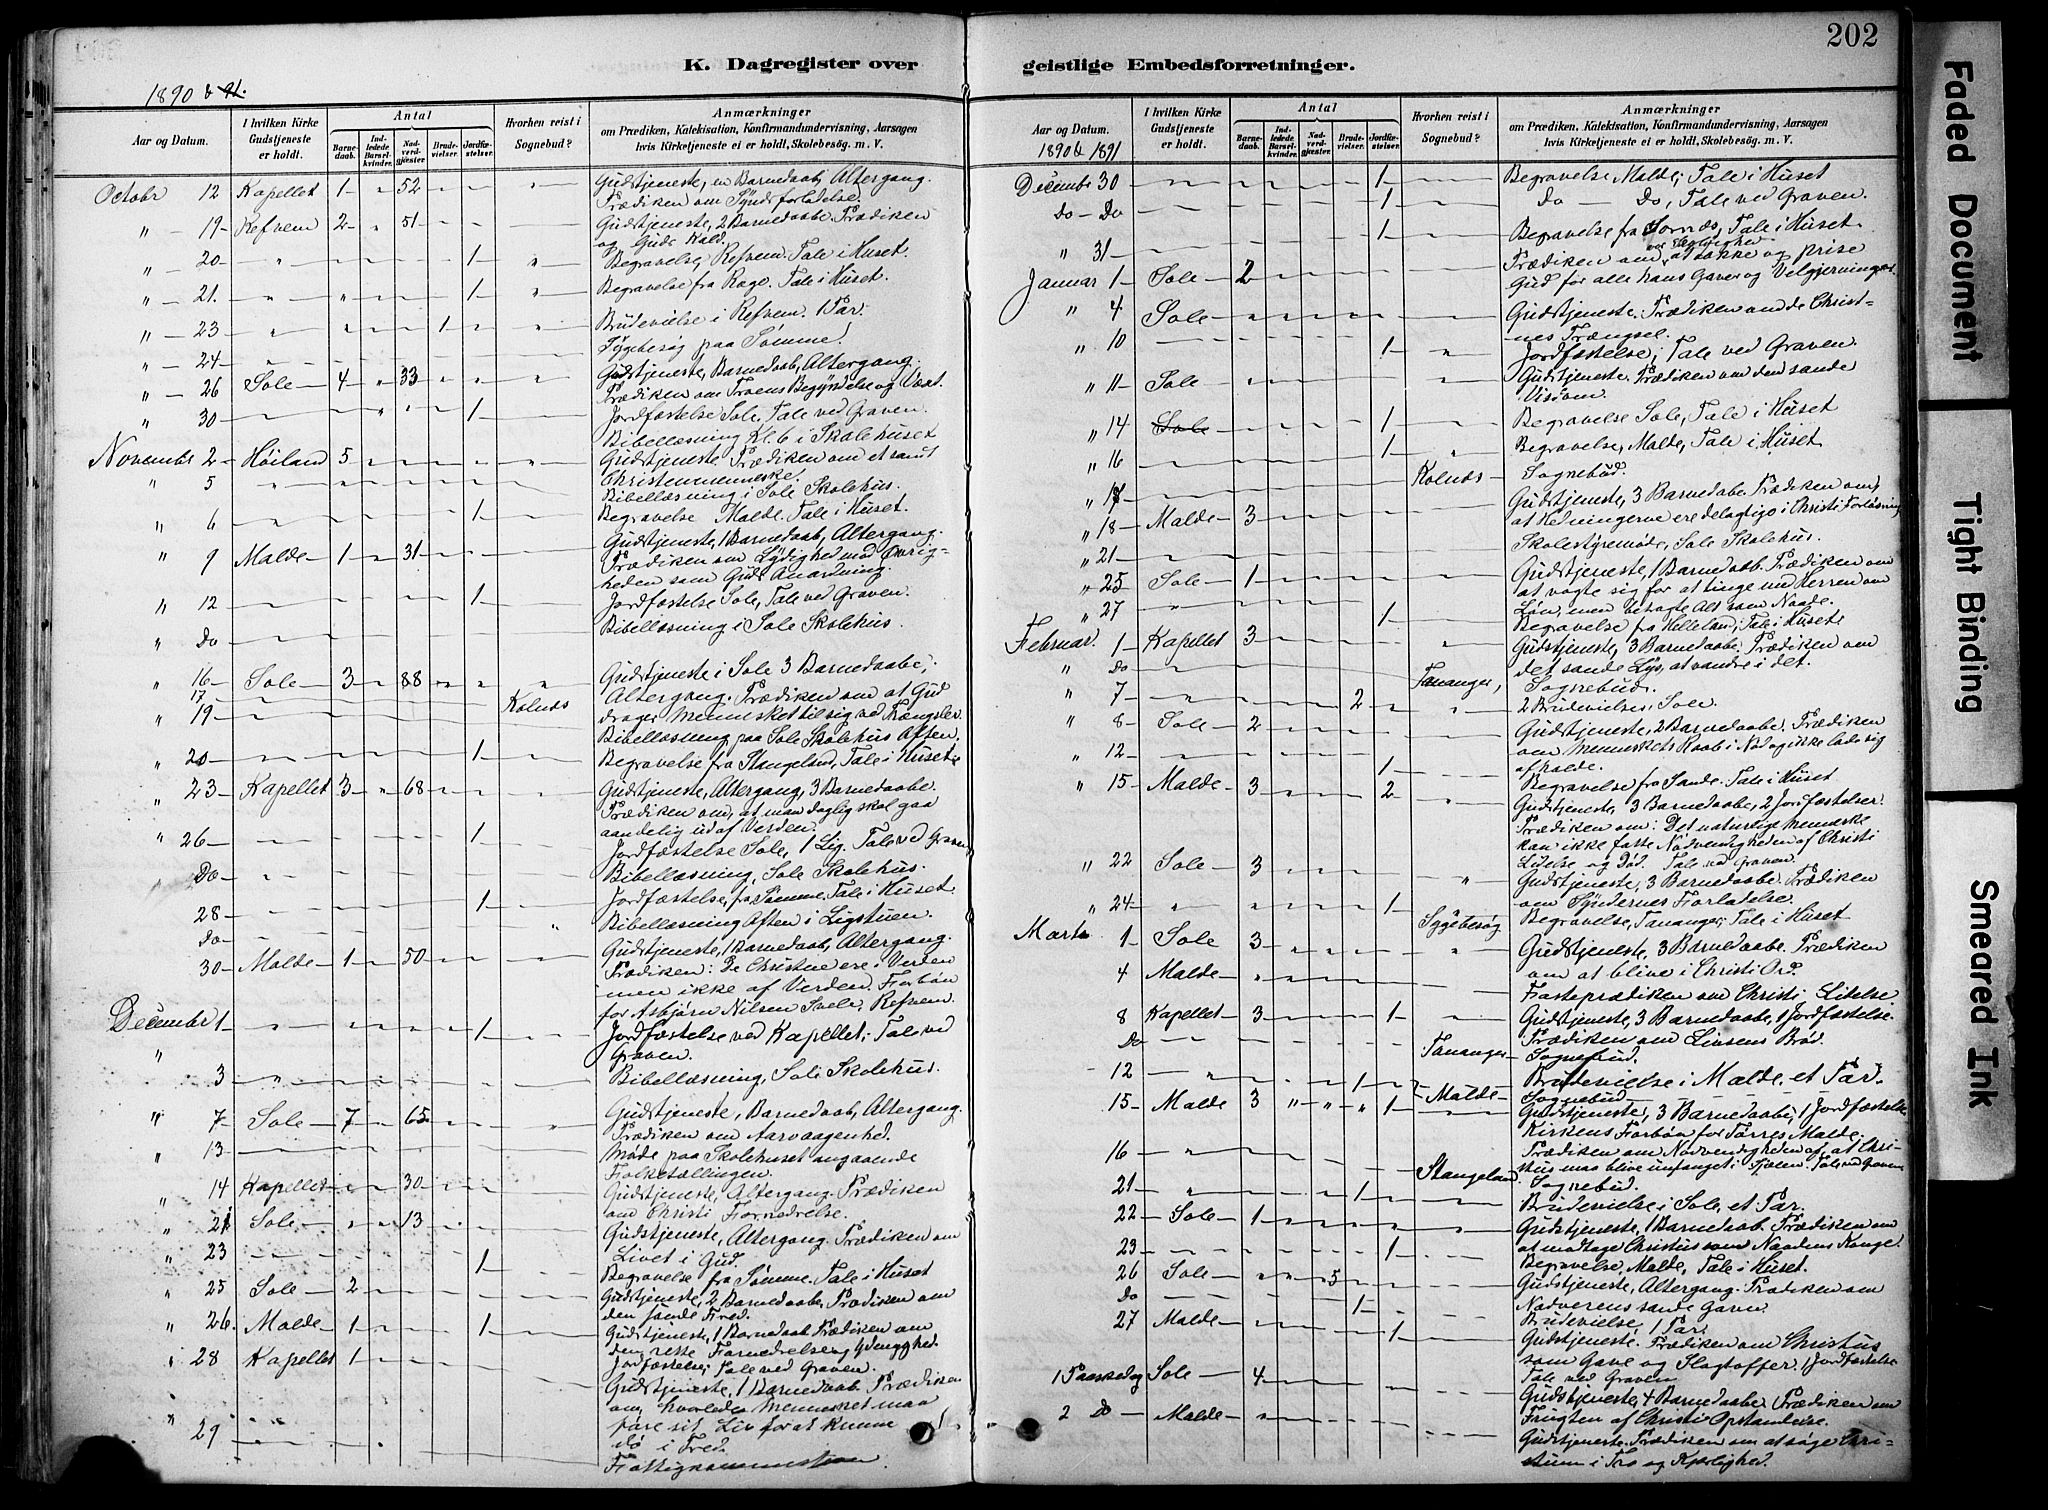 202
K. Dagregister over geistlige Embedsforretninger.
1890 & 91.
Aar og Datum.
I hvilken Kirke Gudstjeneste er holdt.
Antal
Barnedaab.
Indledede Barselkvinder.
Nadverdgjester
Brudevielser.
Jordfæstelser.
Hvorhen reist i Sognebud?
Anmærkninger
om Prædiken, Katekisation, Konfirmandundervisning, Aarsagen
hvis Kirketjeneste ei er holdt, Skolebesøg. m. V.
Octobr 12 Kapellet 1 " 52 Gudstjeneste, en Barnedaab, Altergang.
Prædiken om Synds forladelse.
" 19 Refvem 2 " 51 Gudstjeneste, 2 Barnedaabe. Prædiken
og Guds Kald.
" 20 1 Begravelse, Refvem. Tale i Huset.
" 21. 1 Begravelse fra Rage. Tale i Huset.
" 23 1 Brudevielse i Refvem. 1 Par.
" 24 Sygebesøg paa Sømme.
" 26 Sole 4 " 33 Gudstjeneste, Barnedaab, Altergang.
Prædiken om Troens Begyndelse og Væxt.
" 30 1 Jordfæstelse Sole, Tale ved Graven.
Bibellæsning Kl. 6 i Skolehuset
Novembr 2 Høiland 5 Gudstjeneste. Prædiken om et sandt
Christenmenneske.
" 5 Bibellæsning i Sole Skolehus.
" 6 1 Begravelse Malde. Tale i Huset.
" 9 Malde 1 " 31 Gudstjeneste, 1 Barnedaab, Altergang.
Prædiken om Lydighed mod Øvrig-
heden som Guds Anordning.
" 12 1 Jordfæstelse Sole, Tale ved Graven.
" Do Bibellæsning i Sole Skolehus.
" 16 Sole 3 " 88 Gudstjeneste i Sole 3 Barnedaabe,
17 Kolnæs Altergang. Prædiken om at Gud
" 19 drager Mennesket til sig ved Trængsler.
Bibellæsning paa Sole Skolehus Aften.
" 20 1 Begravelse fra Stangeland, Tale i Huset
" 23 Kapellet 3 " 68 Gudstjeneste, Altergang, 3 Barnedaabe.
Prædiken om, at man daglig skal gaa
aandelig ud af Verden.
" 26 1 Jordfæstelse Sole, 1 Lig. Tale ved Graven
" Do Bibellæsning, Sole Skolehus.
28 1 Jordfæstelse, fra Sømme, Tale i Huset.
Do Bibellæsning Aften i Ligstuen.
30 Malde 1 " 50 Gudstjeneste, 1 Barnedaab, Altergang.
Prædiken: De Christne ere i Verden
men ikke af Verden. Forbøn
for Asbjørn Nilsen Refvem.
Decembr 1 1 Jordfæstelse ved Kapellet; Tale ved
Graven.
3 Bibellæsning, Sole Skolehus.
" 7 Sole 7 65 Gudstjeneste, Barnedaab, Altergang.
Prædiken om Aarvaagenhed.
" 13 Møde paa Skolehuset angaaende
Folketællingen.
" 14 Kapellet 30 Gudstjeneste, Altergang. Prædiken
om Christi Fornedrelse.
" 21 Sole 13 Gudstjeneste, Altergang. Prædiken om
Livet i Gud.
" 23 1 Begravelse fra Sømme. Tale i Huset
" 25 Sole 2 Gudstjeneste, 2 Barnedaabe, Prædiken om
den sande Fred.
" 26. Malde 1 1 Gudstjeneste, 1 Barnedaab Prædiken om
den rette Fornedrelse og Ydmyghed.
Jordfæstelse; Tale ved Graven.
" 28 Kapellet 1 Gudstjeneste, 1 Barnedaab. Prædiken
om, hvorledes Mennesket maa
føre sit Liv for at kunne
dø i Fred.
" 29 Fattigkommission
Aar og Datum.
1890 & 1891
I hvilken Kirke Gudstjeneste er holdt.
Antal
Barnedaab.
Indledede Barselkvinder.
Nadverdgjester.
Brudevielser.
Jordfæstelser.
Hvorhen reist i Sognebud?
Anmærkninger
om Prædiken, Katekisation, Konfirmandundervisning, Aarsagen
hvis Kirketjeneste ei er holdt, Skolebesøg. m. V.
Decembr 30 1 Begravelse Malde; Tale i Huset
Do — Do 1 Do — Do, Tale ved Graven.
" 31 1 Begravelse fra Tornæs, Tale i Huset.
Januar 1 Sole 2 Prædiken om at takke og prise
Gud for alle hans Gaver og Velgjerninger.
" 4 Sole Gudstjeneste. Prædiken om de Christ-
nes Trængsel.
" 10 1 Jordfæstelse; Tale ved Graven.
" 11 Sole Gudstjeneste. Prædiken om den sande
Visdom.
" 14 Sole 1 Begravelse Sole, Tale i Huset
" 16 1 Begravelse, Malde, Tale i Huset
" 17 Kolnæs Sognebud.
" 18 Malde 3 Gudstjeneste, 3 Barnedaabe. Prædiken om,
at Hedningerne ere delagtige i Christi Forløsning
" 21 Skolestyremøde, Sole Skolehus.
" 25 Sole 1 Gudstjeneste, 1 Barnedaab. Prædiken om
at vogte sig for at tinge med Herren om
Løn, men betragte Alt som Naade.
" 27 1 Begravelse fra Helleland; Tale i Huset
Februar. 1 Kapellet 3 Gudstjeneste, 3 Barnedaabe. Prædiken om
det sande Lys, at vandre i det.
" Do Tananger, Sognebud.
" 7 2 2 Brudevielser, Sole.
" 8 Sole 2 Gudstjeneste, 2 Barnedaabe. Prædiken
om Menneskets Raab i Nød og ikke lade sig
afholde.
" 12 1 Begravelse fra Sande. Tale i Huset
" 15 Malde 3 2 Gudstjeneste, 3 Barnedaabe, 2 Jordfæstelser.
Prædiken om: Det naturlige Menneske
kan ikke fatte Nødvendigheden af Christi
Lidelse og Død. Tale ved Graven.
" 22 Sole 3 Gudstjeneste, 3 Barnedaabe. Prædiken
om Syndernes Forladelse.
" 24 1 Begravelse, Tananger; Tale i Huset
Sygebesøg
Marts 1 Sole 3 Gudstjeneste, 3 Barnedaabe. Prædiken
om at blive i Christi Ord.
4 Malde Fasteprædiken om Christi Lidelse.
8 Kapellet 3 1 Gudstjeneste, 3 Barnedaabe, 1 Jordfæstelse.
Prædiken om Livsens Brød.
Do Tananger Sognebud.
12 1 Brudevielse i Malde, et Par.
Malde Sognebud
15 Malde 3 " " " 1 Gudstjeneste, 3 Barnedaabe, 1 Jordfæstelse
Kirkens Forbøn for Tørres Malde.
Prædiken om Nødvendigheden af, at Chri-
stus maa blive undfanget i Sjælen. Tale ved Graven
16 Stangeland Sognebud.
21 1 Brudevielse i Sole, et Par.
22 Sole 1 Gudstjeneste, 1 Barnedaab. Prædiken om
at modtage Christus som Naadens Konge.
23 1 Begravelse, Malde, Tale i Huset.
26 Sole 5 Gudstjeneste, Altergang. Prædiken om
Nadverens sande Gavn.
Do 1 Brudevielse 1 Par.
27 Malde 1 Gudstjeneste. Prædiken om Christus
som Gave og Slagtoffer. 1 Jordfæstelse
Tale ved Graven
1 Paaskedag Sole 4 Gudstjeneste, 4 Barnedaabe. Prædiken om
Frugten af Christi Opstandelse.
2 Do Malde Gudstjeneste. Prædiken om at søge Chri-
stum i Tro og Kjærlighed.
Faded Document
Tight Binding
Smeared Ink